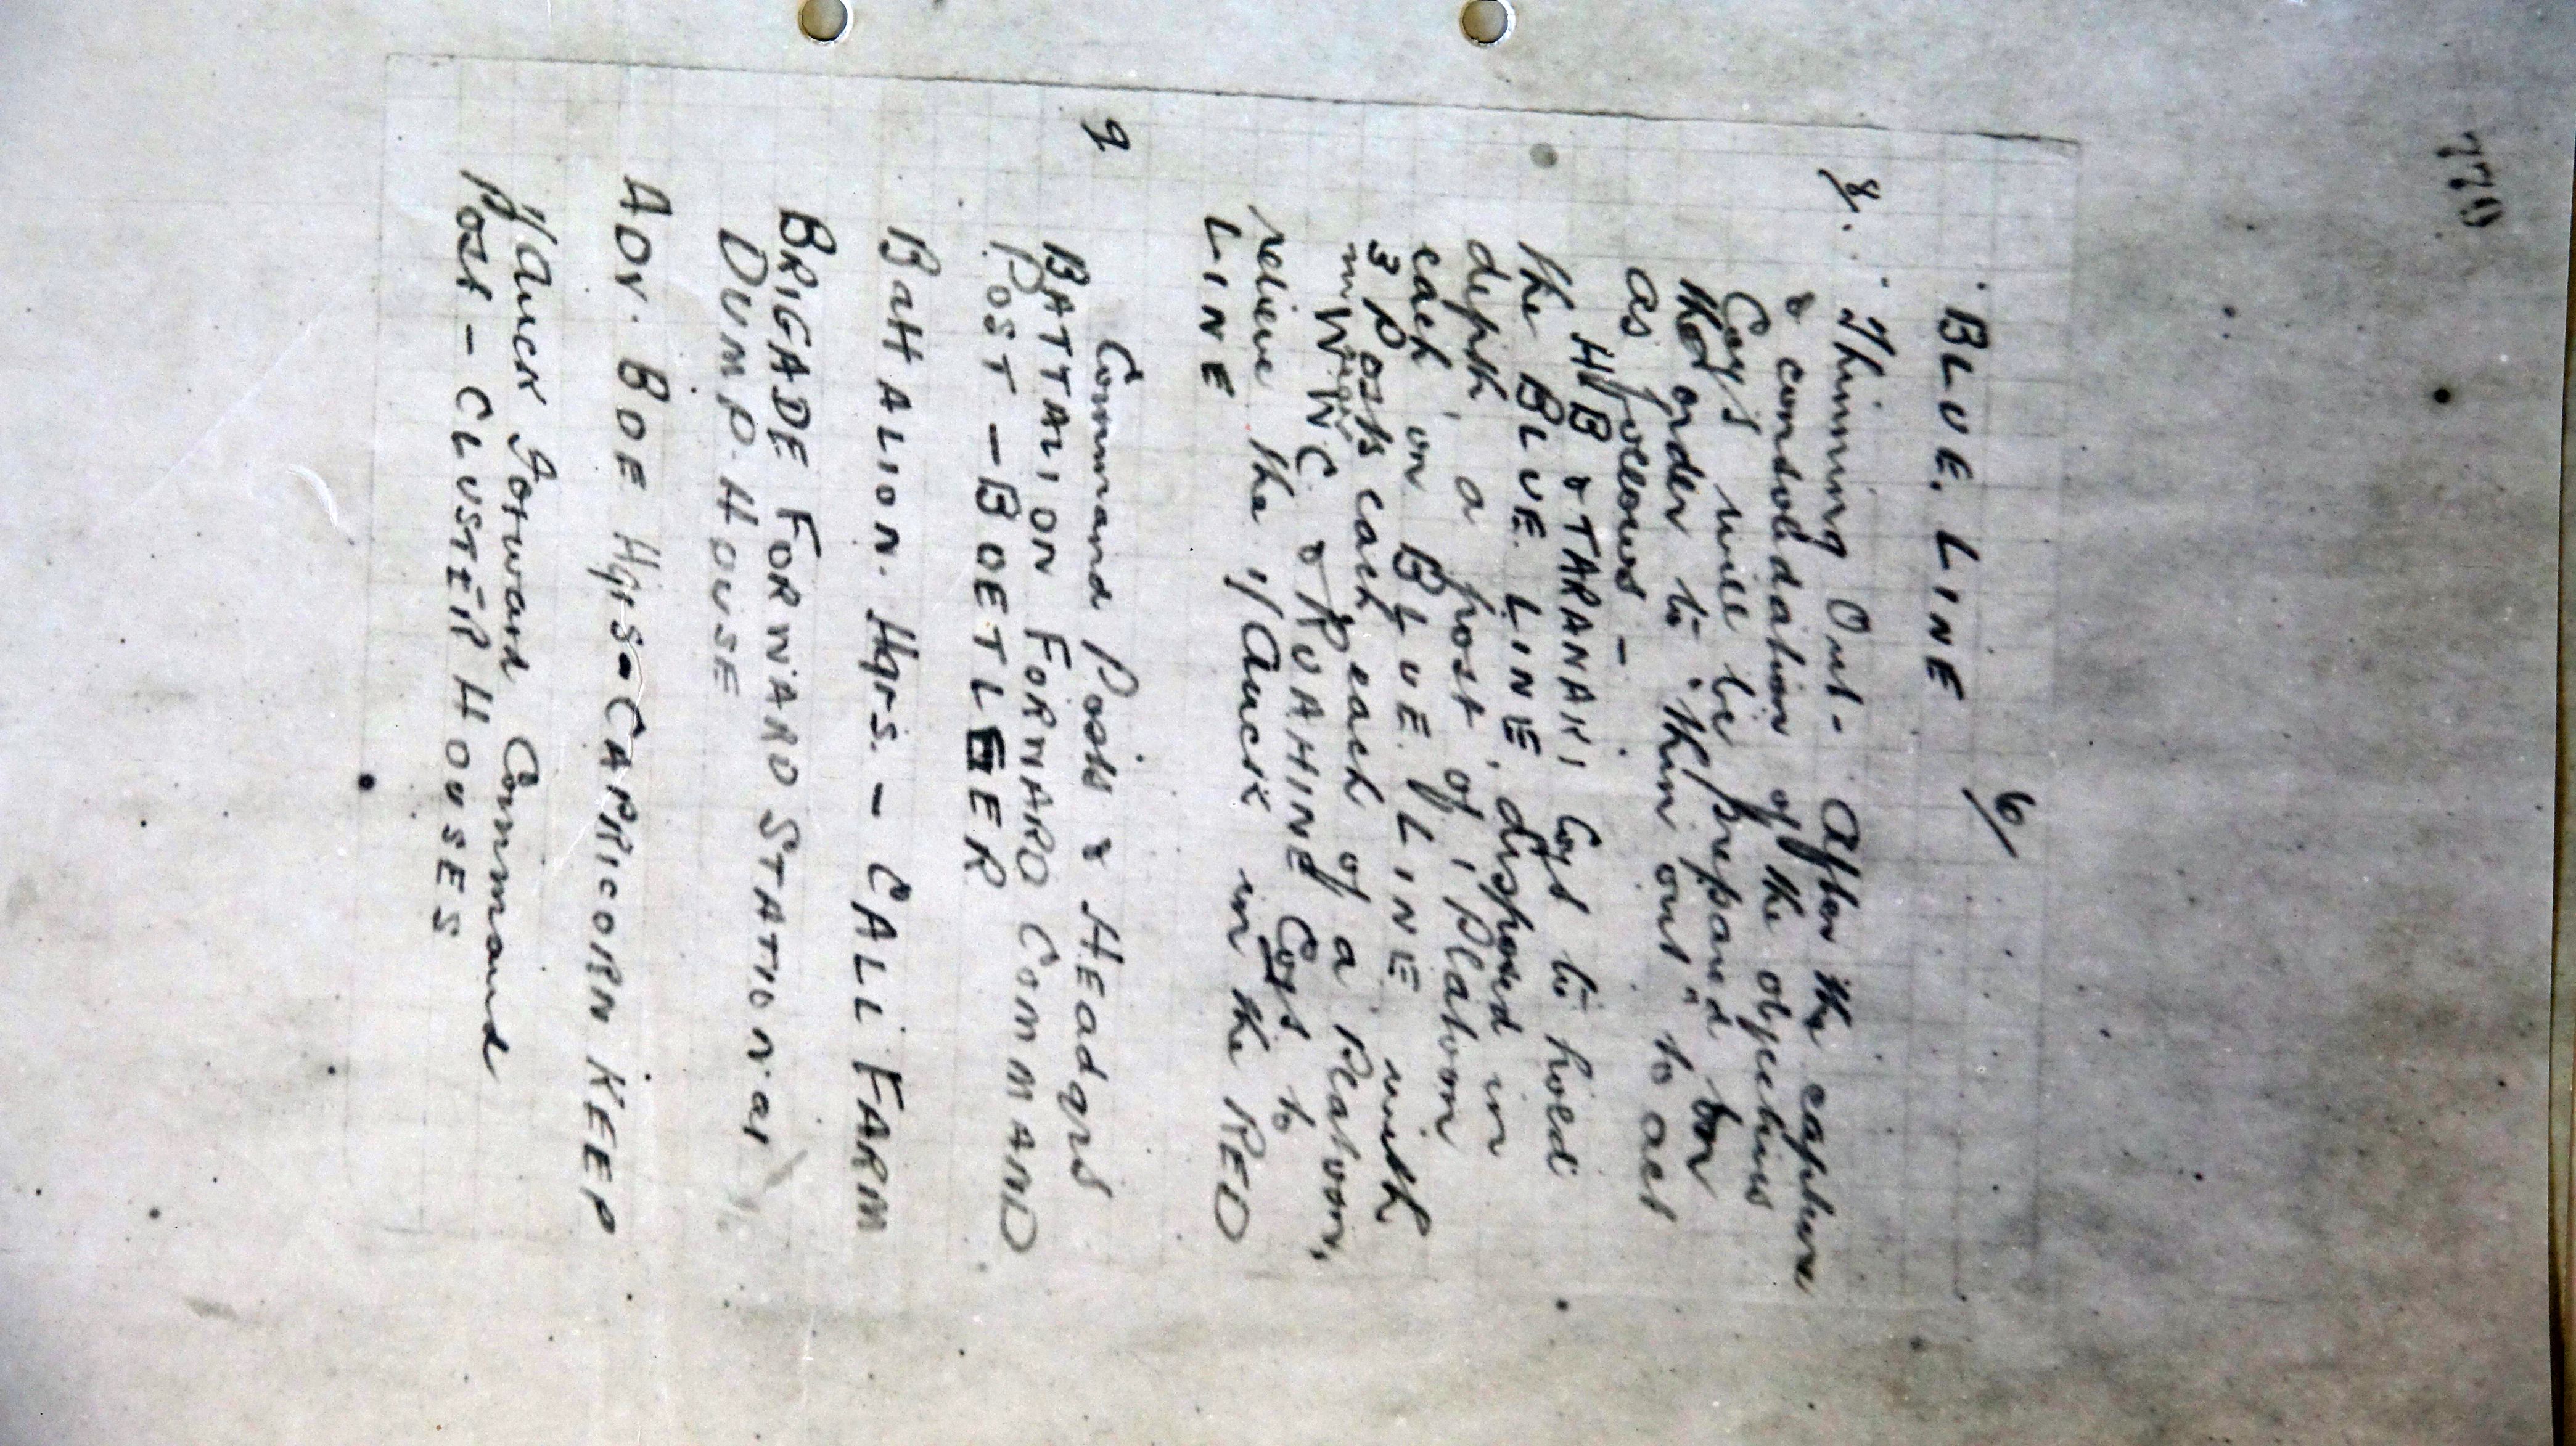 770
6/
BLUE. LINE
8. Thinning Out - After the capture
& consolidation of the objectives
Coys will be prepared on
the order to "thin out" to act
as follows -
HB & TARANAKI Coys to hold
the BLUE LINE, disposed in
depth, a post of 1 Platoon
each, on BLUE. LINE with
3 Posts each each of a Platoon,
WWC & RUAHINE Coys to
relieve the 1/Auck in the RED
LINE
9 Command Posts & HEadqrs
BATTALION FORWARD COMMAND
POST - BOETLEER
BattALION. Hqrs. - CALL FARM
BRIGADE FORWARD STATION at
DUMP. HOUSE
ADV. BDE Hqrs - CAPRICORN KEEP
1/Auck Forward Command
Post - CLUSTER HOUSES